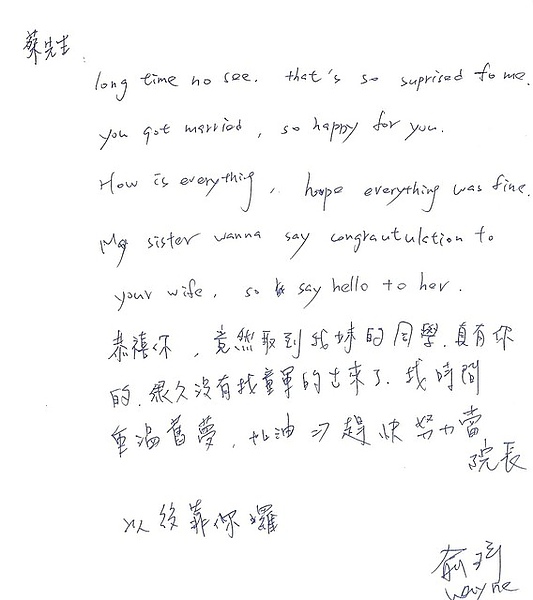 蔡先生:
long time no see. that's so suprised to me.
you got married, so happy for you.
How is everything, hope everything was fine.
My sister wanna say congrautulation to
your wife, so say hello to her.
恭禧你, 竟然取到我妹的同學, 真有你
的. 很久沒有找童軍的出來了. 找時間
重溫舊夢, 加油 => 趕快努力當
院長
以後靠你囉
Wayne